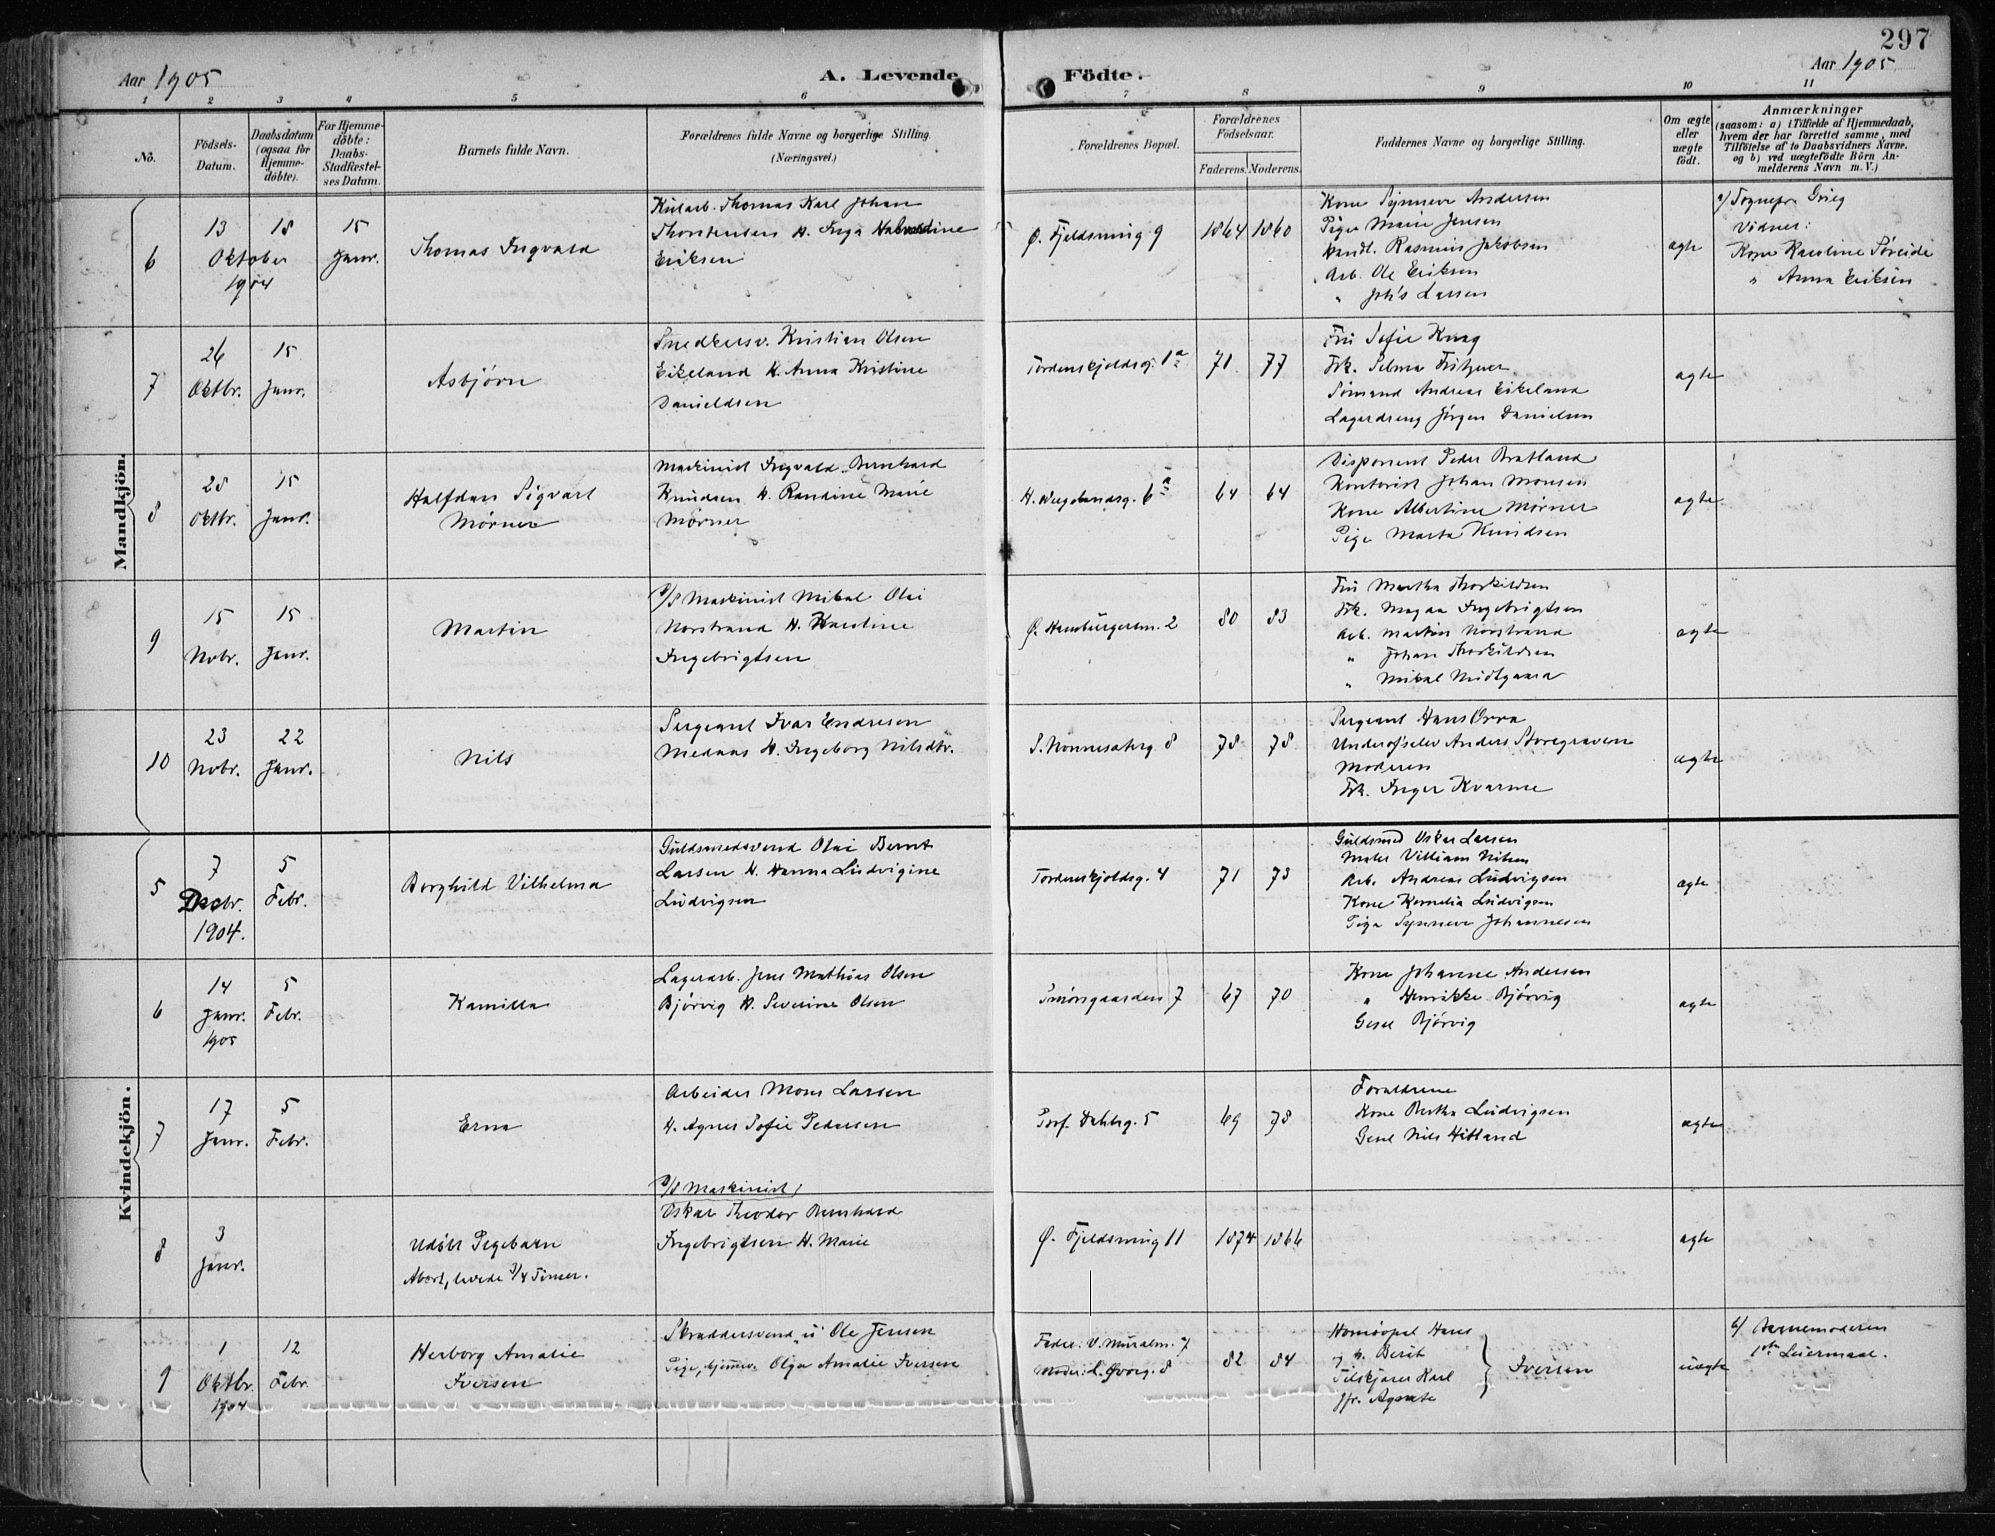 297
Aar 1905
A. Levende
Födte.
Aar 1905
1 2 3 4 5 6 7 8 9 10 11
No.
Födsels-
Datum.
Daabsdatum
(ogsaa for
Hjemme-
döbte).
For Hjemme-
döbte:
Daabs-
Stadfæstel-
ses Datum.
Barnets fulde Navn.
Forældrenes fulde Navne og borgerlige Stilling.
(Næringsvei.)
Forældrenes Bopæl.
Forældrenes
Födselsaar.
Faderens. Moderens.
Faddernes Navne og borgerlige Stilling.
Om ægte
eller
uægte
födt.
Anmærkninger
(saasom: a) i Tilfælde af Hjemmedaab,
hvem der har forrettet samme, med
Tilföielse af to Daabsvidners Navne.
og b) ved uægtefödte Börn An-
melderens Navn m. V.)
Mandkjön.
6
13
Oktober
1904
18
15
Janr.
Thomas Ingvald
Thomas Karl Johan
Thorstensen H. Inga
Eriksen
Ø. Fjeldsmug 9
1864 1860
Kone Synneve Andersen
Pige Marie Jensen
Handl. Rasmus Jakobsen
Arb. Ole Eriksen
" Joh's Larsen
ægte
a/ Sognepr. Grieg
Vidner:
Kone Karoline Søreide
" Anna Eriksen
7
26
Oktbr.
15
Janr.
Asbjörn
Snedkersv. Kristian Olsen
Eikeland H. Anna Kristine
Danieldsen
Tordenskjoldsg. 1a
71 77
Fru Sofie Krag
Frk. Selma
Sömand Andreas Eikeland
Lagerdreng Jörgen Danielsen
ægte
8
28
Oktbr.
15
Janr.
Halfdan Sigvart
Mørner
Maskinist Ingvald Bernhard
Knudsen H. Randine Marie
Mørner
H. Wergelandsg. 6a
64 64
Disponent Peder Bratland
Kontorist Johan Monsen
Kone Albertine Mørner
Pige Marta Knudsen
ægte
9
15
Nobr.
15
Janr.
Martin
D/S Maskinist Mikal Olai
Norstrand H. Karoline
Ingebrigtsen
Ø. Hamburgersm. 2
80 83
Fru Martha Thorkildsen
Frk. Magda Ingebrigtsen
Arb. Martin Norstrand
" Johan Thorkildsen
" Mikal Midtgaard
ægte
10
23
Nobr.
22
Janr.
Nils
Sergeant Ivar Endresen
Medaas H. Ingeborg Nilsdtr.
S. Nonnesøterg. 8
78 78
Sergeant Hans Orra
Underof'selev Anders Storegraven
Moderen
Frk. Inger Kvarme
ægte
Kvindekjön.
5
7
Decbr.
1904.
5
Febr.
Borghild Vilhelma
Guldsmedsvend Olai Bernt
Larsen H. Hanna Ludvigine
Ludvigsen
Tordenskjoldsg. 4
71 73
Guldsmed Oskar Larsen
Maler Villiam Nilsen
Arb. Andreas Ludvigsen
Kone Kornelia Ludvigsen
Pige Synneve Johannesen
ægte
6
14
Janr.
1905
5
Febr.
Kamilla
Lagerarb. Jens Mathias Olsen
Bjørvig H. Severine Olsen
Smörsgaarden 7
67 70
Kone Johanne Andersen
" Henrikke Bjørvig
Gesel Bjørvig
ægte
7
17
Janr.
5
Febr.
Erna
Arbeider Mons Larsen
H. Agnes Sofie Pedersen
Prof. Dahlsg. 5
69 78
Forældrene
Kone Bertha Ludvigsen
Gesel Nils Hitland
ægte
8
3
Janr.
Udöbt Pigebarn
Abort, levede 3/4 Timer.
D/S Maskinist
Oskar Theodor Bernhard
Ingebrigtsen H. Marie
Ø. Fjeldsmug 11
1874 1866
ægte
9
1
Oktbr.
1904
12
Febr.
Herborg Amalie
Iversen
Skræddersvend, u Ole Jensen
Pige, hjemmev. Olga Amalie Iversen
Fader: V. Muralm. 7
Moder: L. Øvreg. 8
82 84
Homöopat Hans
Berit
Tilskjærer Karl
Jfr. Agnete
Iversen
uægte
b/ Barnemoderen
1ste Leiermaal.